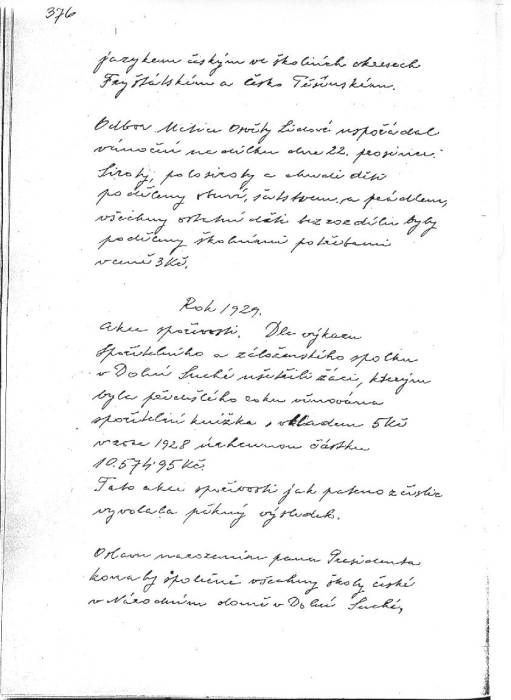 376
jazykem českým ve školních okresech
Fryštátském a česko Těšínském.
Odbor Matice Osvěty Lidové uspořádal
vánoční nadílku dne 22. prosince.
Siroty, polosiroty a chudé děti
poděleny obuví, šatstvem, a prádlem,
všechny ostatní děti bez rozdílu byly
poděleny školními potřebami
v ceně 3 Kč.
Rok 1929.
Akce spořivosti. Dle výkazu
Spořitelního a záloženského spolku
v Dolní Suché ušetřili žáci, kterým
byla předešlého roku věnována
spořitelní knížka s vkladem 5 Kč
v roce 1928 úhrnnou částku
10.574.95 Kč.
Tato akce spořivosti jak patrno z číslic
vyvolala pěkný výsledek.
Oslavu narozenin pana Presidenta
konaly společně všechny školy české
v Národním domě v Dolní Suché,